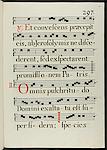 297
V. Et convescens præcepit
eis, ab Jerosolymis ne disce-
derent, sed expectarent
promissionem Patris.
Omnis pulchritudo
Domini exaltata est su-
per sidera: Species